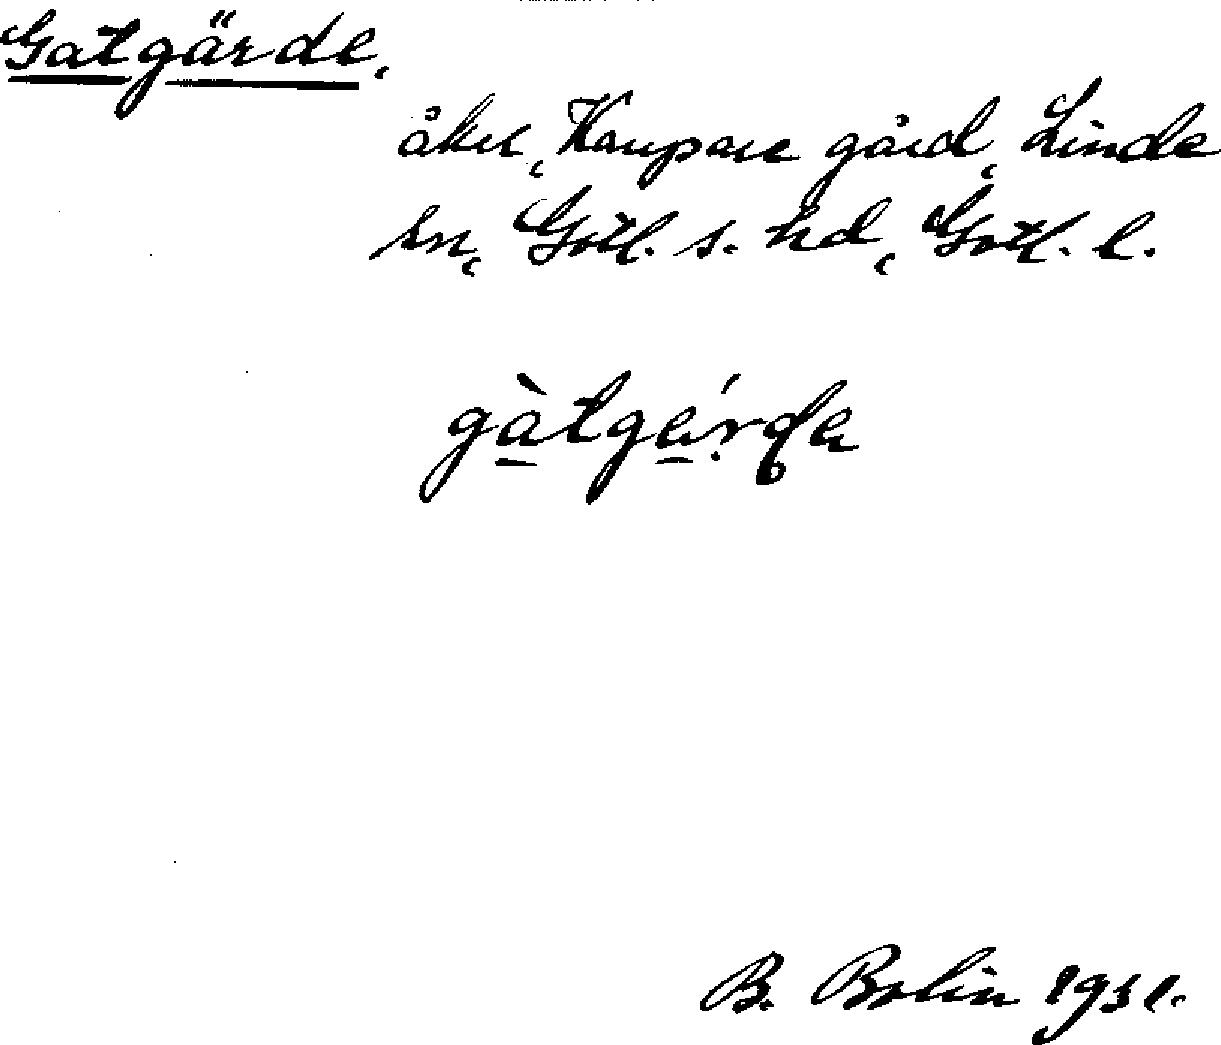 Gatgärde,
åker, Kaupare gård, Linde
sn, Gotl. s. hd, Gotl. l.
gàtgárda
B. Bolin 1931.